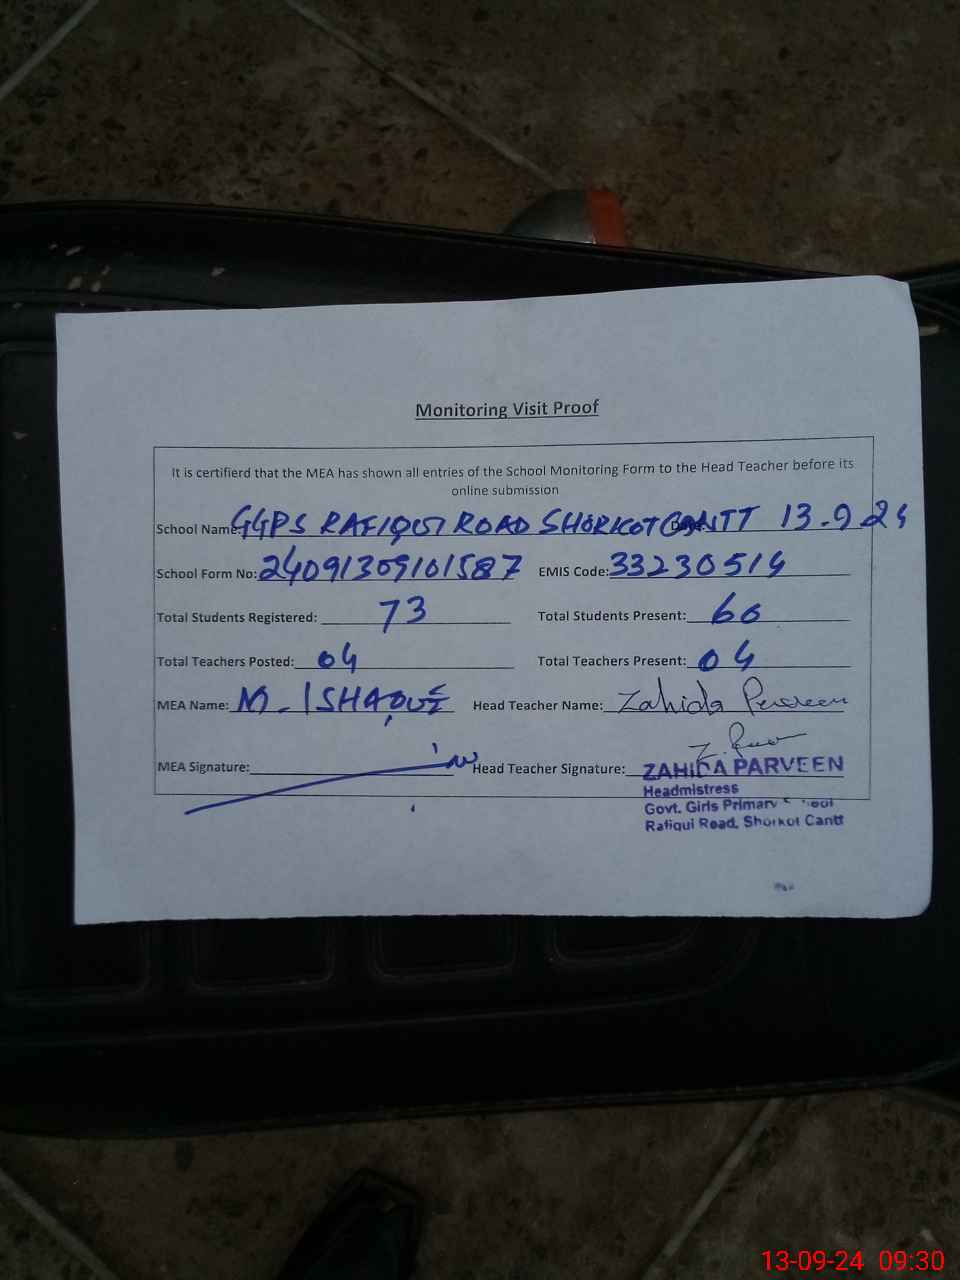 Monitoring Visit Proof
It is certifierd that the MEA has shown all entries of the School Monitoring Form to the Head Teacher before its
online submission
School Name: GGPS RAFIQUI ROAD SHORKOT CANTT Date: 13.9.24
School Form No: 24091309101587 EMIS Code: 33230514
Total Students Registered: 73 Total Students Present: 60
Total Teachers Posted: 04 Total Teachers Present: 04
MEA Name: M. ISHAQUE Head Teacher Name: Zahida Perveen
MEA Signature: Head Teacher Signature:
ZAHIDA PARVEEN
Headmistress
Govt. Girls Primary School
Rafiqui Road, Shorkot Cantt
13-09-24 09:30